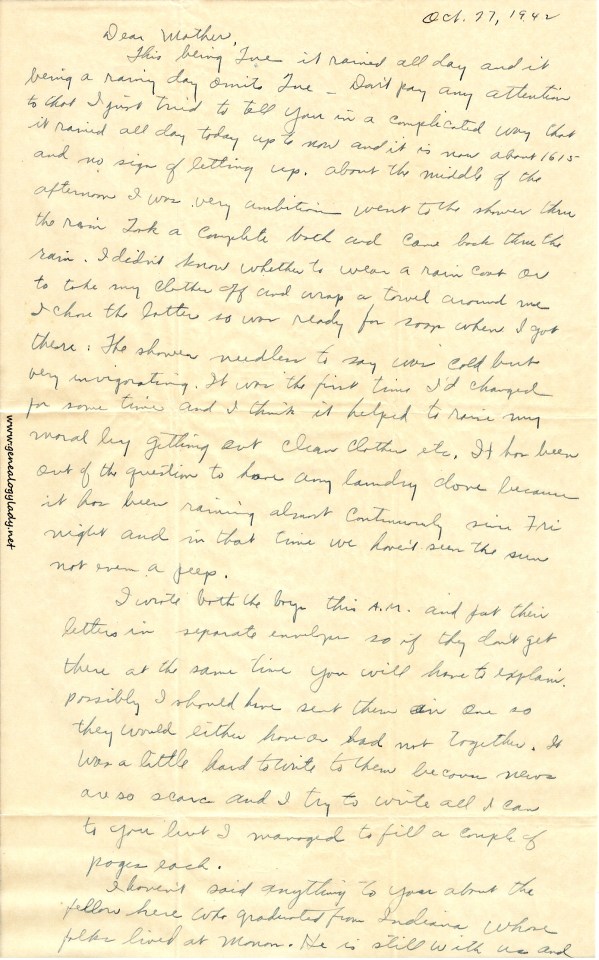 Oct. 27, 1942
Dear Mother,
This being Tue it rained all day and it
being a rainy day omits Tue – Don't pay any attention
to that I just tried to tell you in a complicated way that
it rained all day today up to now and it is now about 1615
and no sign of letting up. about the middle of the
afternoon I was very ambition went to the shower thru
the rain Took a complete bath and came back thru the
rain. I didn't know whether to wear a rain coat or
to take my clothes off and wrap a towel around me
I chose the latter so was ready for soap when I got
there. The shower needless to say was cold but
very invigorating. It was the first time I'd changed
for some time and I think it helped to raise my
moral by getting out clean clothes etc. It has been
out of the question to have any laundry done because
it has been raining almost continuously since Fri
night and in that time we haven't seen the sun
not even a peep.
I wrote both the boys this A.M. and put their
letters in separate envelopes so if they don't get
there at the same time you will have to explain.
possibly I should have sent them in one so
they would either have or had not together. It
was a little hard to write to them because news
are so scarce and I try to write all I can
to you but I managed to fill a couple of
pages each.
I haven't said anything to you about the
fellow here who graduated from Indiana whose
folks lived at Monon. He is still with us and
www.genealogylady.net